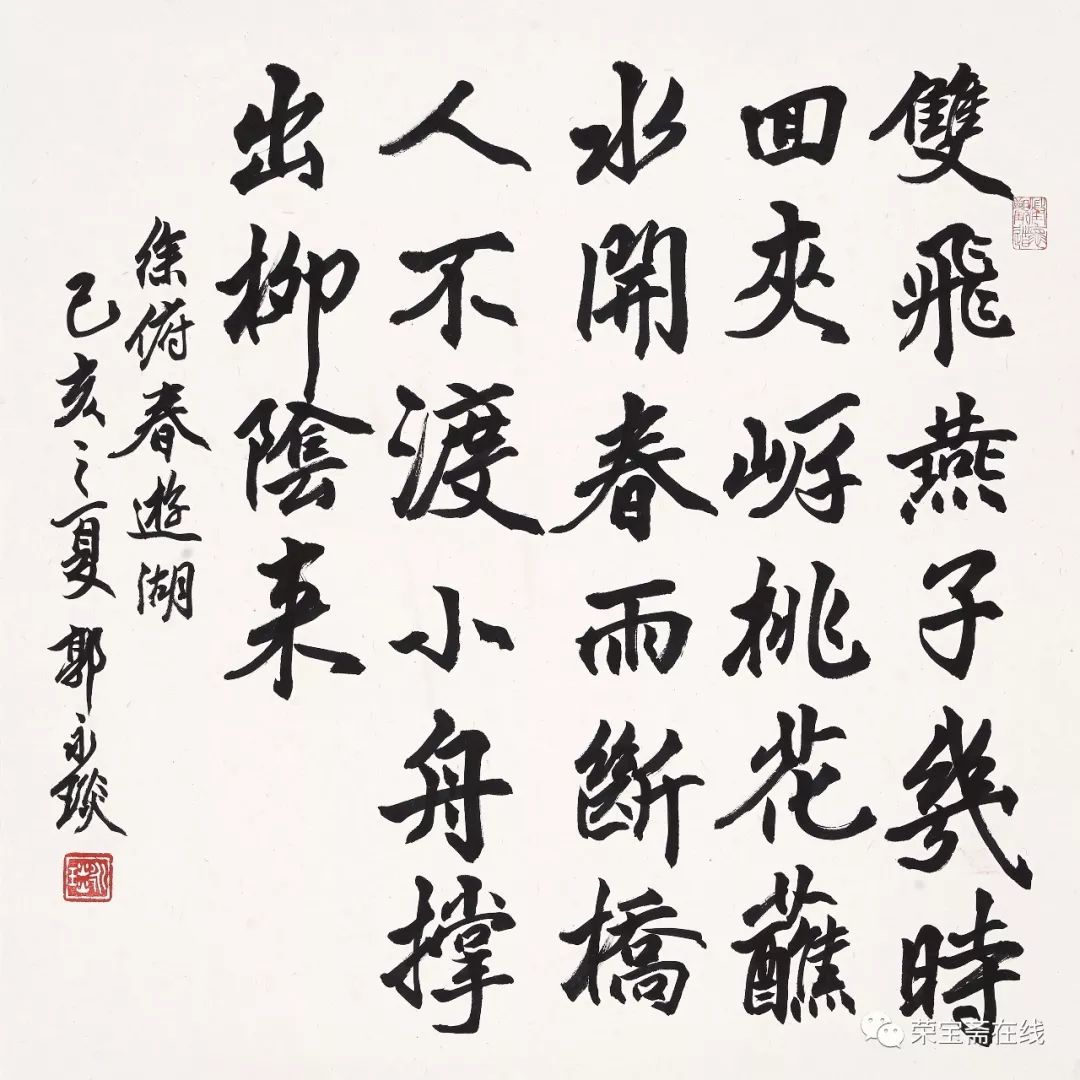 雙飛燕子幾時
回夾岸桃花蘸
水開春雨斷橋
人不渡小舟撐
出柳陰來
徐俯春遊湖
己亥之夏郭永琰
荣宝斋在线